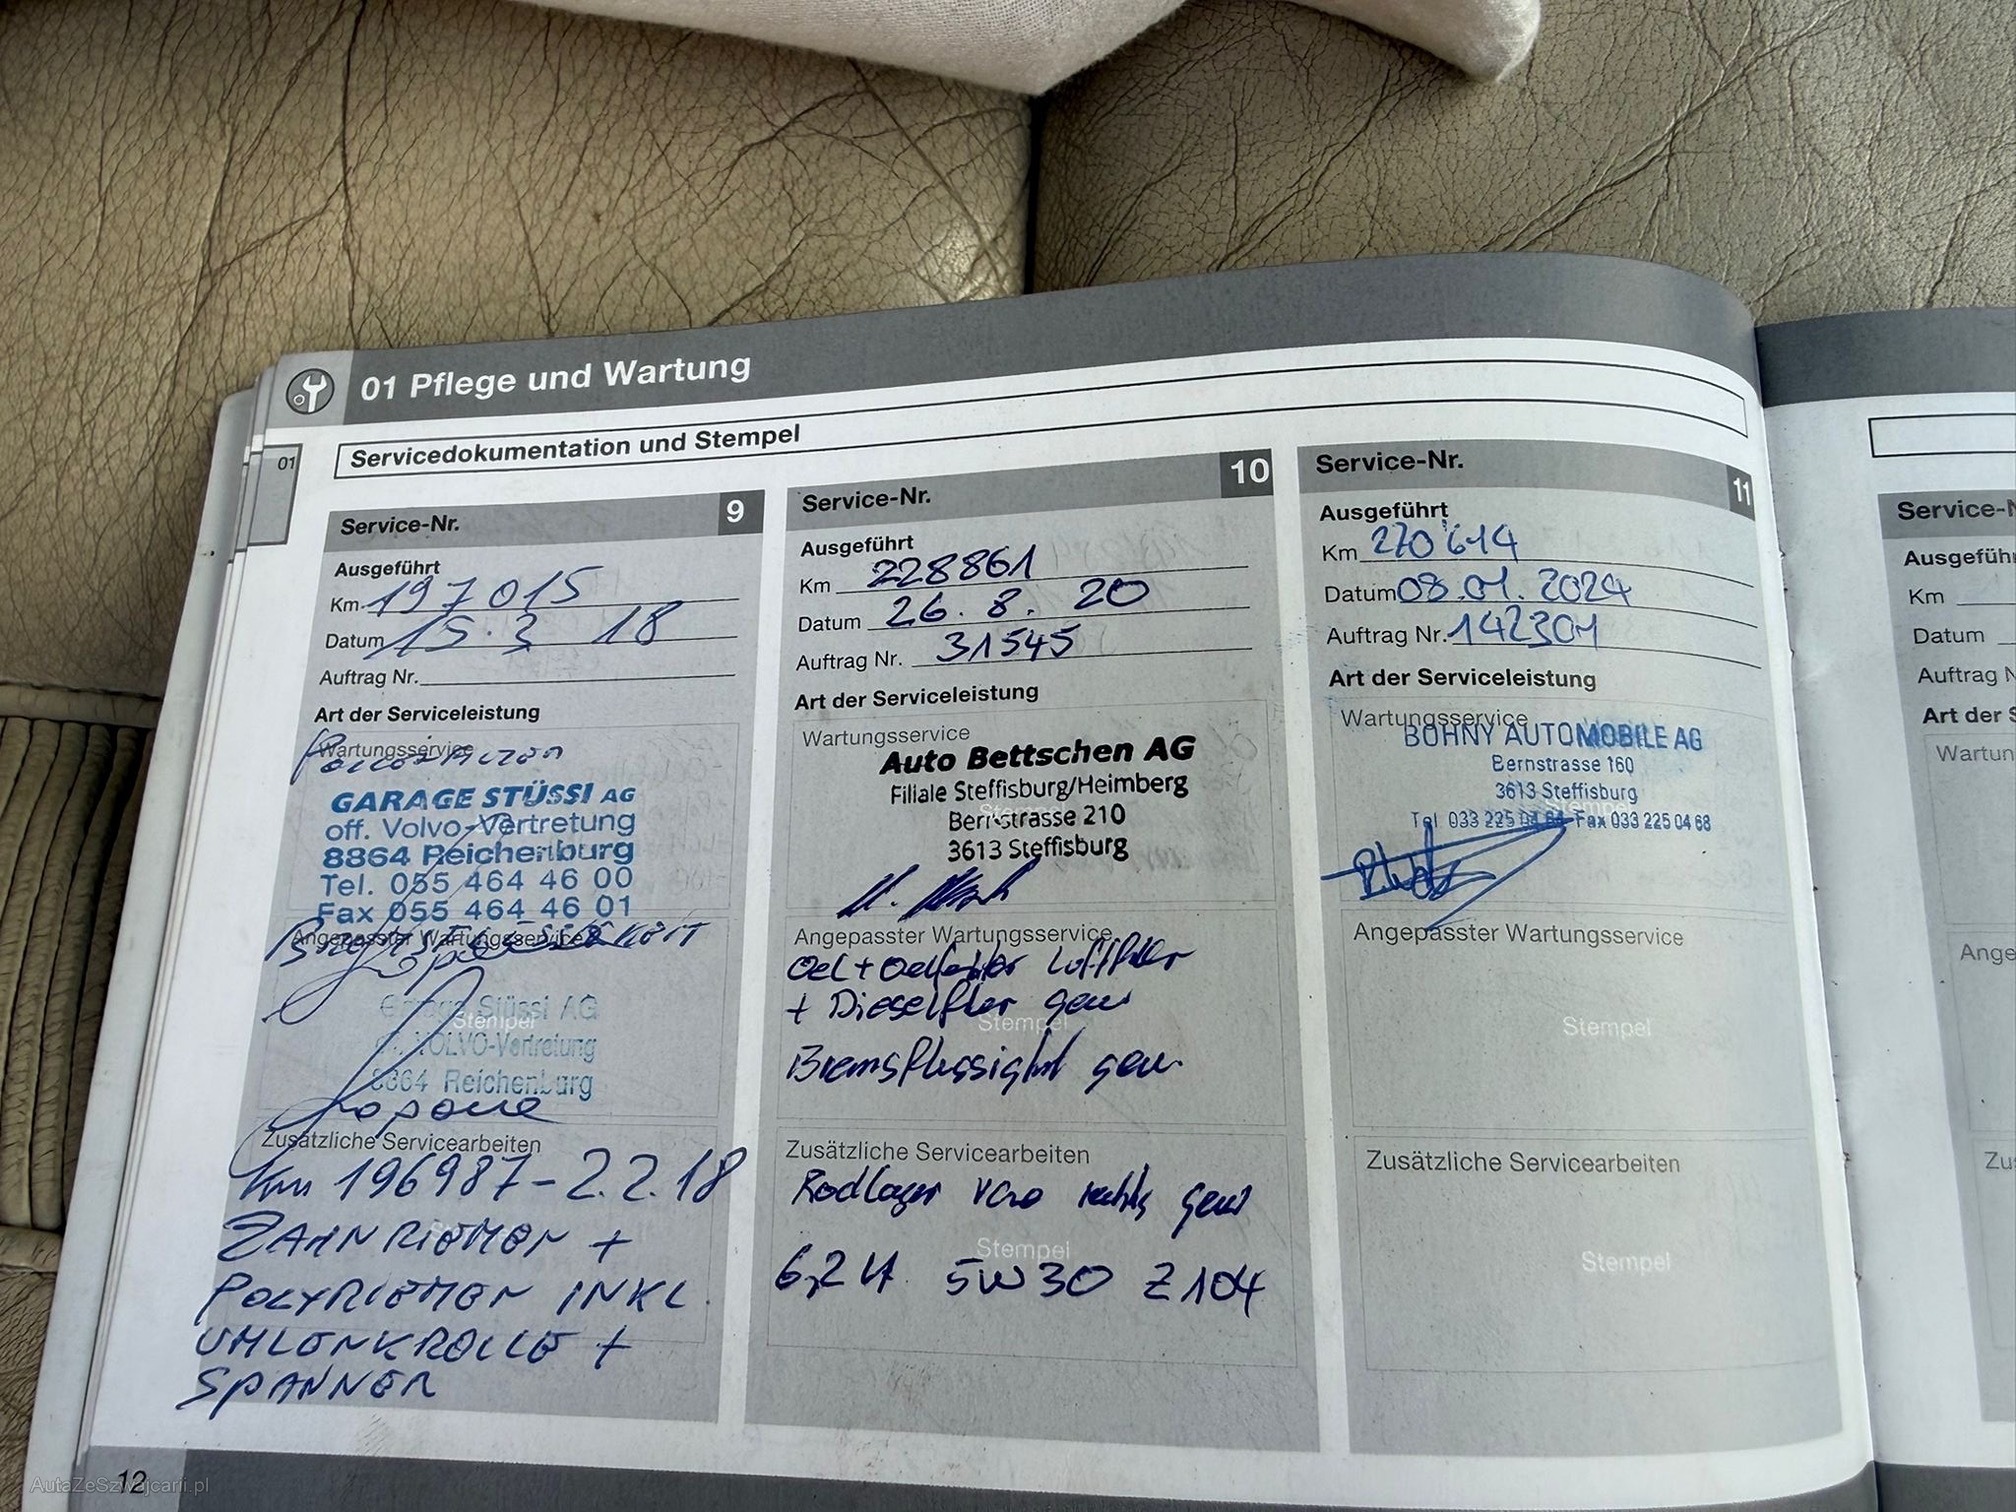 01 Pflege und Wartung
Servicedokumentation und Stempel
01
Service-Nr. 9
Ausgeführt
Km 197015
Datum 15.3 18
Auftrag Nr.
Art der Serviceleistung
Wartungsservice
GARAGE STÜSSI AG
off. Volvo-Vertretung
8864 Reichenburg
Tel. 055 464 46 00
Fax 055 464 46 01
Angepasster Wartungsservice
Garage Stüssi AG
Stempel
off. VOLVO-Vertretung
8864 Reichenburg
Zusätzliche Servicearbeiten
Km 196987 - 2.2.18
ZAHNRIEMEN +
POLYRIEMEN INKL.
UMLENKROLLE +
SPANNER
Service-Nr. 10
Ausgeführt
Km 228861
Datum 26. 8. 20
Auftrag Nr. 31545
Art der Serviceleistung
Wartungsservice
Auto Bettschen AG
Filiale Steffisburg/Heimberg
Stempel
Bernstrasse 210
3613 Steffisburg
Angepasster Wartungsservice
Oel + Oelfilter Luftfilter
+ Dieselfilter gew
Stempel
Bremsflussigkt gew.
Zusätzliche Servicearbeiten
Radlager vorne rechts gew
Stempel
6,2 Lt 5W30 Z104
Service-Nr. 11
Ausgeführt
Km 270'614
Datum 08.01.2024
Auftrag Nr. 142301
Art der Serviceleistung
Wartungsservice
BÖHNY AUTOMOBILE AG
Bernstrasse 160
3613 Steffisburg
Stempel
Tel 033 225 04 64 Fax 033 225 04 68
Angepasster Wartungsservice
Stempel
Zusätzliche Servicearbeiten
Stempel
Service-N
Ausgeführ
Km
Datum
Auftrag N
Art der S
Wartun
Ange
Zu
12
AutaZeSzwajcarii.pl